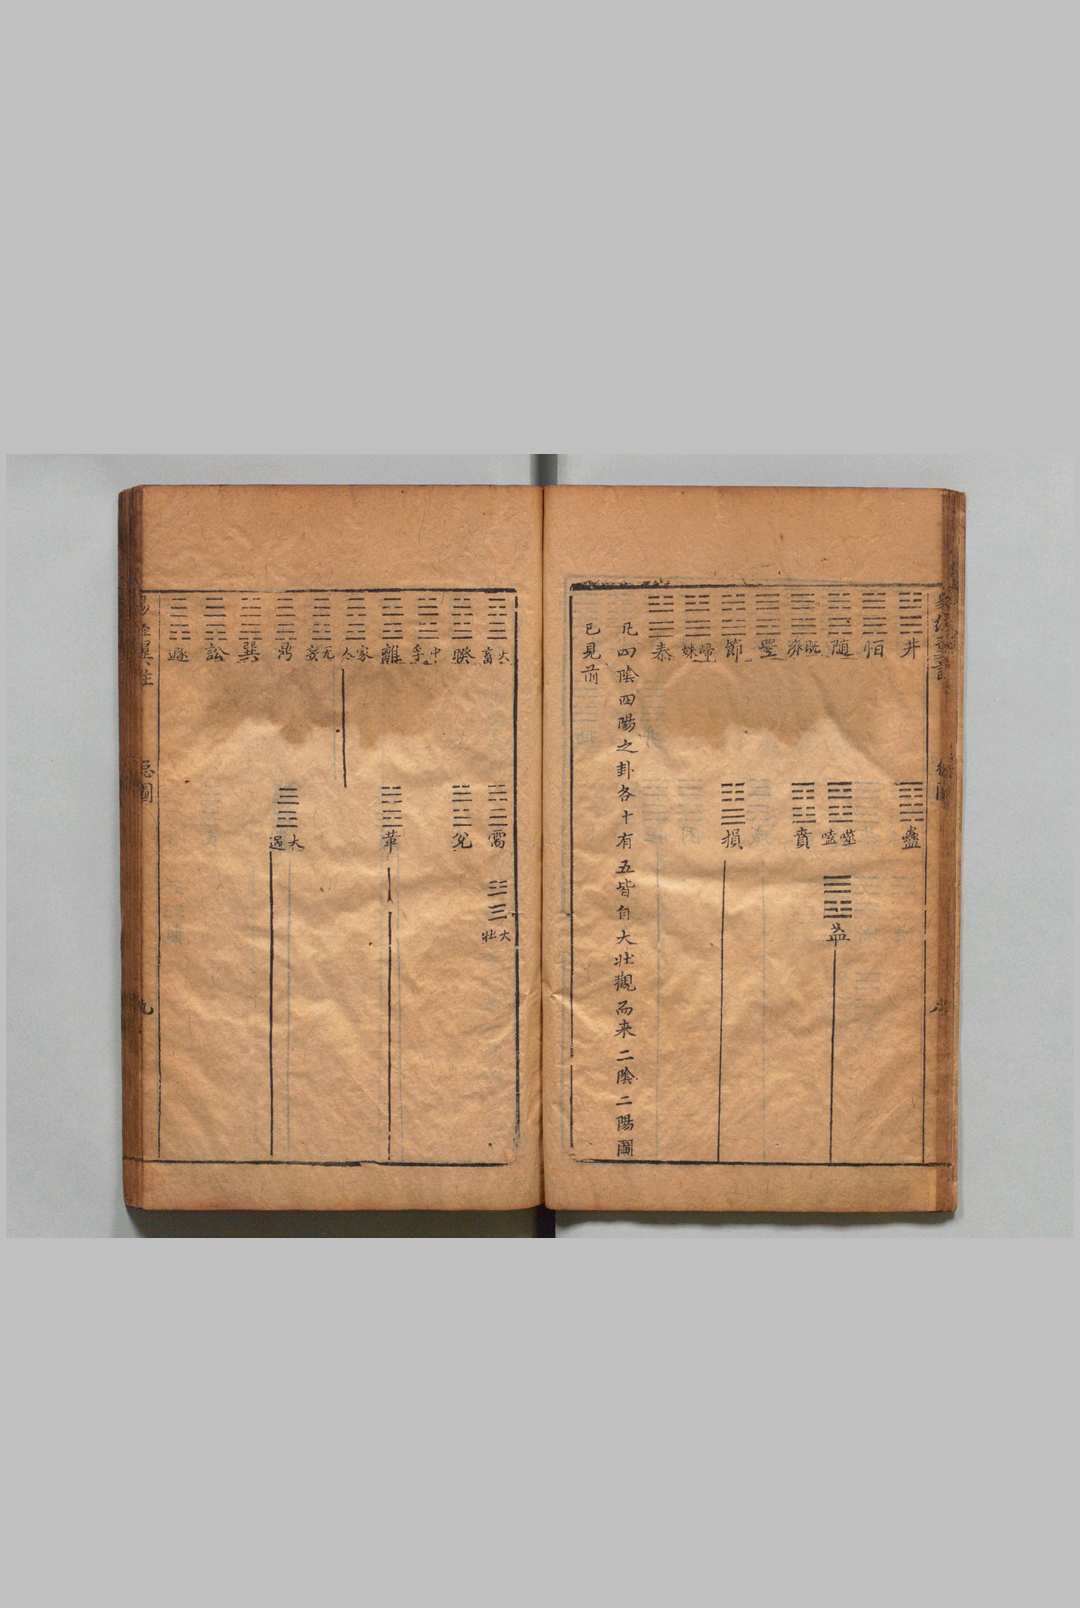 井
蠱
恒
隨
噬嗑
益
既濟
賁
豐
節
損
歸妹
泰
凡四陰四陽之卦各十有五皆自大壯觀而来二陰二陽圖
已見前
大畜
需
大壯
睽
兌
中孚
離
革
家人
无妄
鼎
大過
巽
訟
遯
圖
九